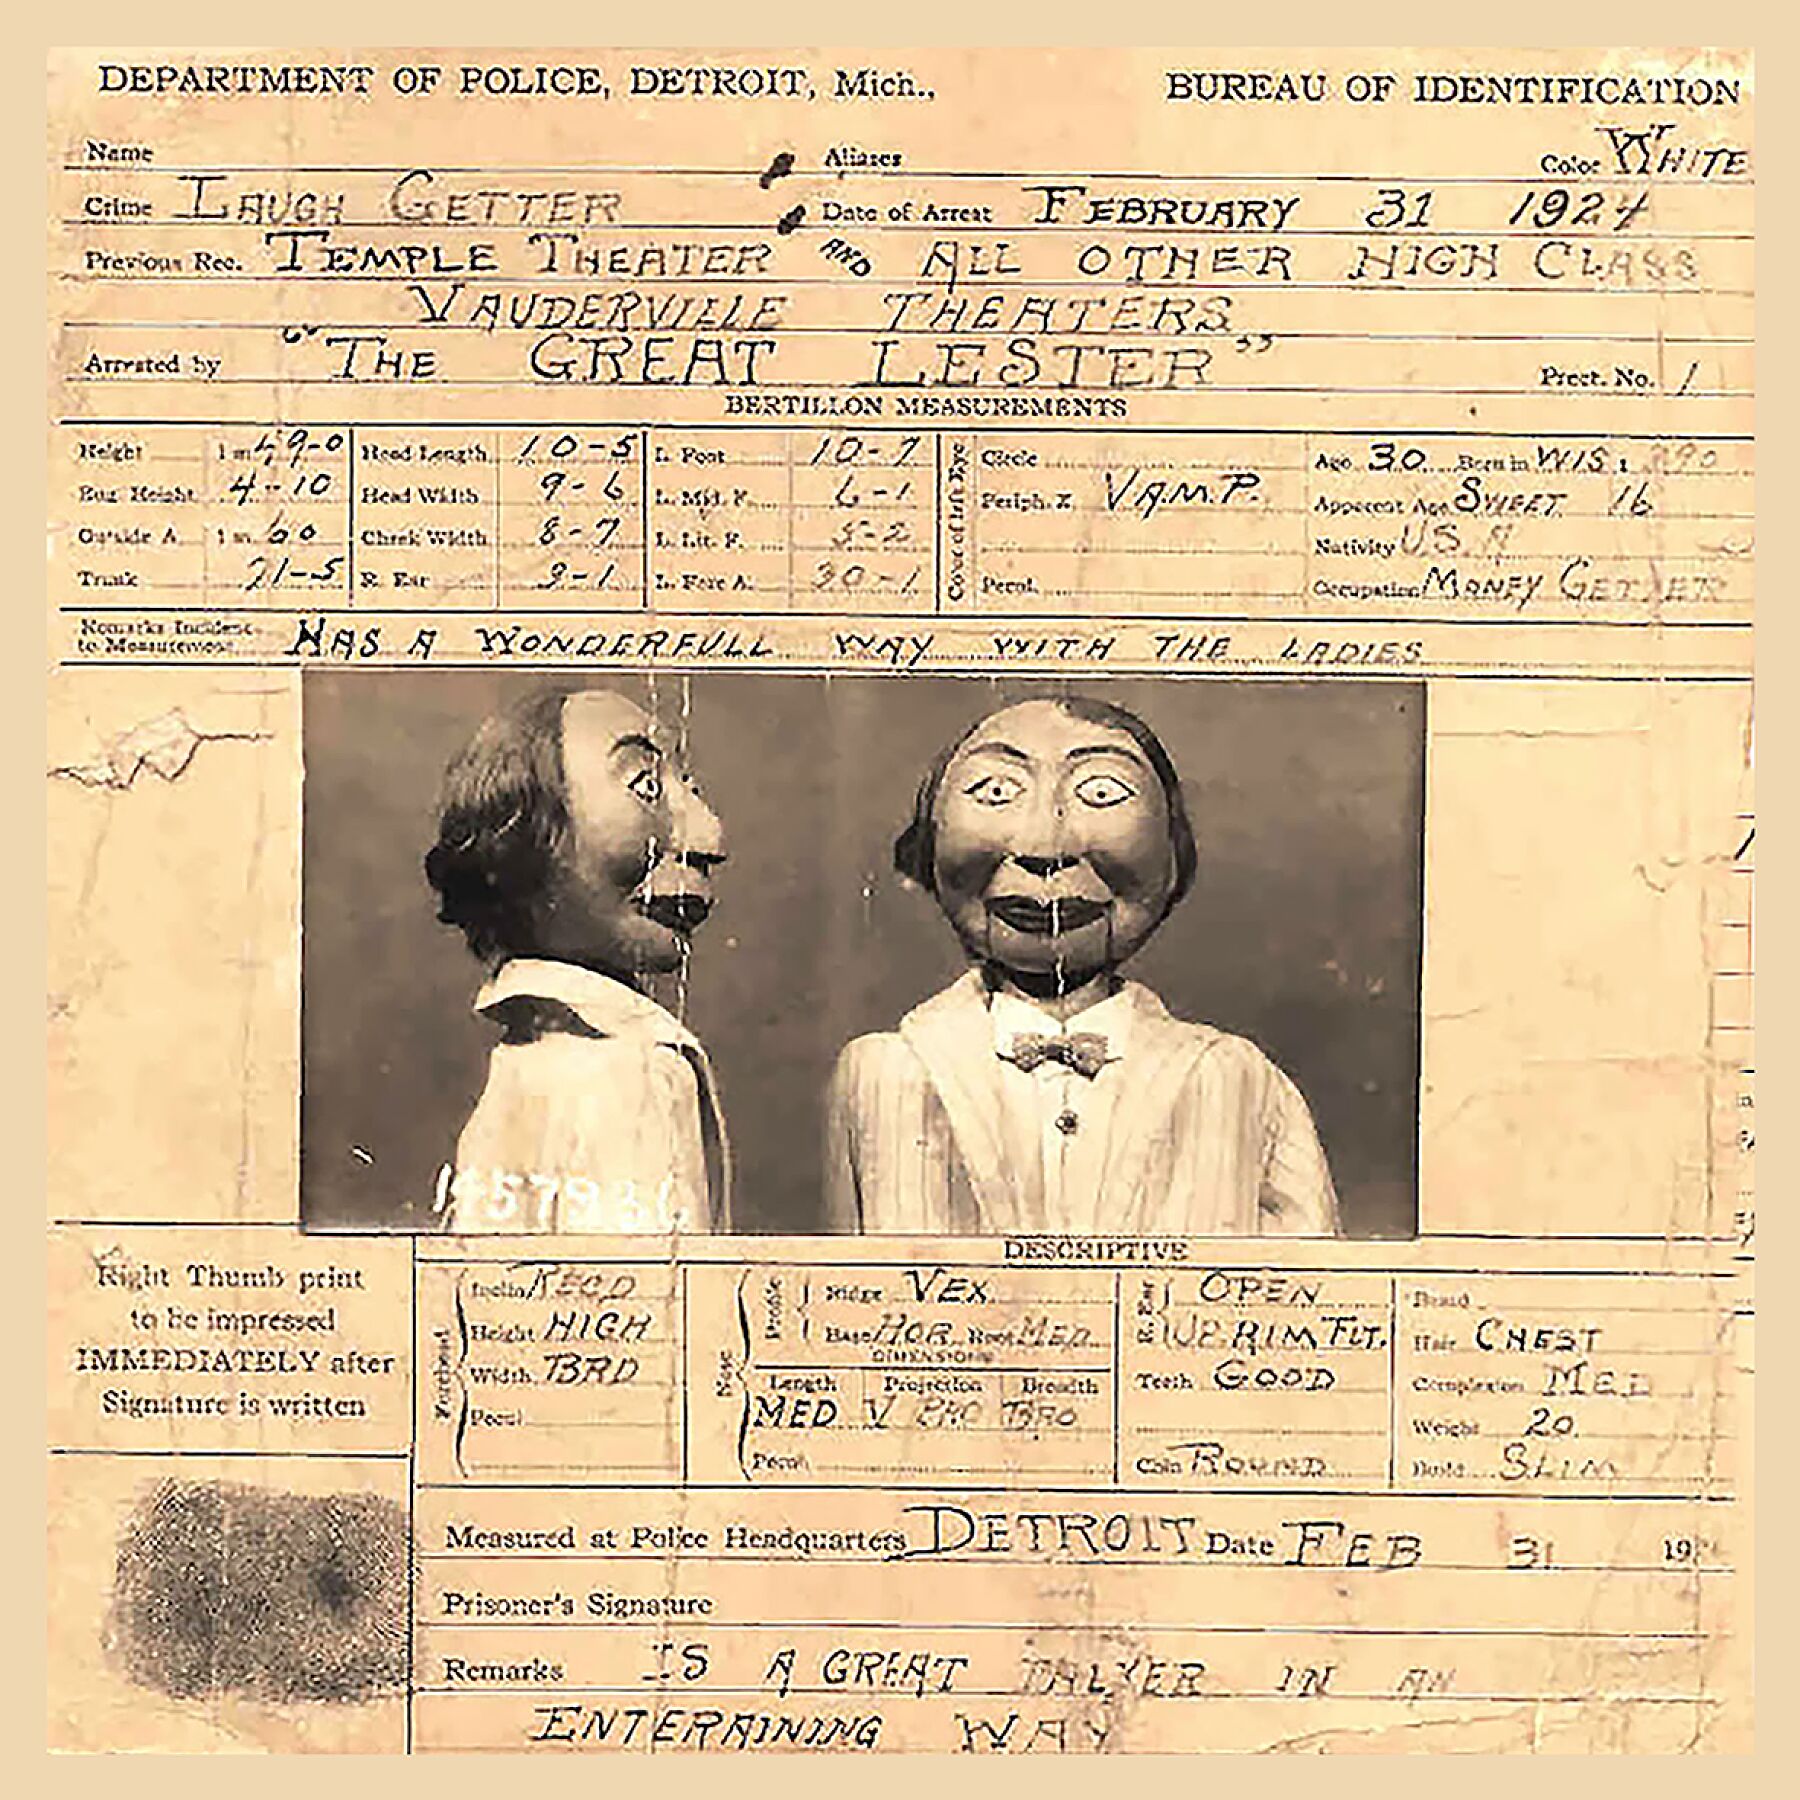 DEPARTMENT OF POLICE, DETROIT, Mich., BUREAU OF IDENTIFICATION
Name Aliases Color WHITE
Crime LAUGH GETTER Date of Arrest FEBRUARY 31 1924
Previous Rec. TEMPLE THEATER AND ALL OTHER HIGH CLASS
VAUDERVILLE THEATERS
Arrested by "THE GREAT LESTER" Prect. No. 1
BERTILLON MEASUREMENTS
Height 1 m 49-0 Head Length 10-5 L. Foot 10-7 Circle Age 30 Born in WIS
Bug Height 4-10 Head Width 9-6 L. Mid. F. 6-1 Periph. Z. VAMP. Apparent Age SWEET 16
Outside A. 1 m. 60 Cheek Width 8-7 L. Lit. F. 5-2 Nativity USA
Trunk 21-5 R. Ear 9-1 L. Fore A. 30-1 Pecul. Occupation MONEY GETTER
Color of left Eye
Remarks Incident
to Measurement HAS A WONDERFULL WAY WITH THE LADIES
DESCRIPTIVE
Right Thumb print
to be impressed
IMMEDIATELY after
Signature is written
Forehead
Inclin. RECD
Height HIGH
Width BRD
Pecul.
Nose
Profile
Ridge VEX
Base HOR Root MED
DIMENSIONS
Length Projection Breadth
MED BRO
Pecul.
R. Ear OPEN
UP. RIM FLT.
Teeth GOOD
Chin ROUND
Beard
Hair CHEST
Complexion MED
Weight 20.
Build SLIM
Measured at Police Headquarters DETROIT Date FEB 31 19
Prisoner's Signature
Remarks IS A GREAT TALKER IN AN
ENTERAINING WAY